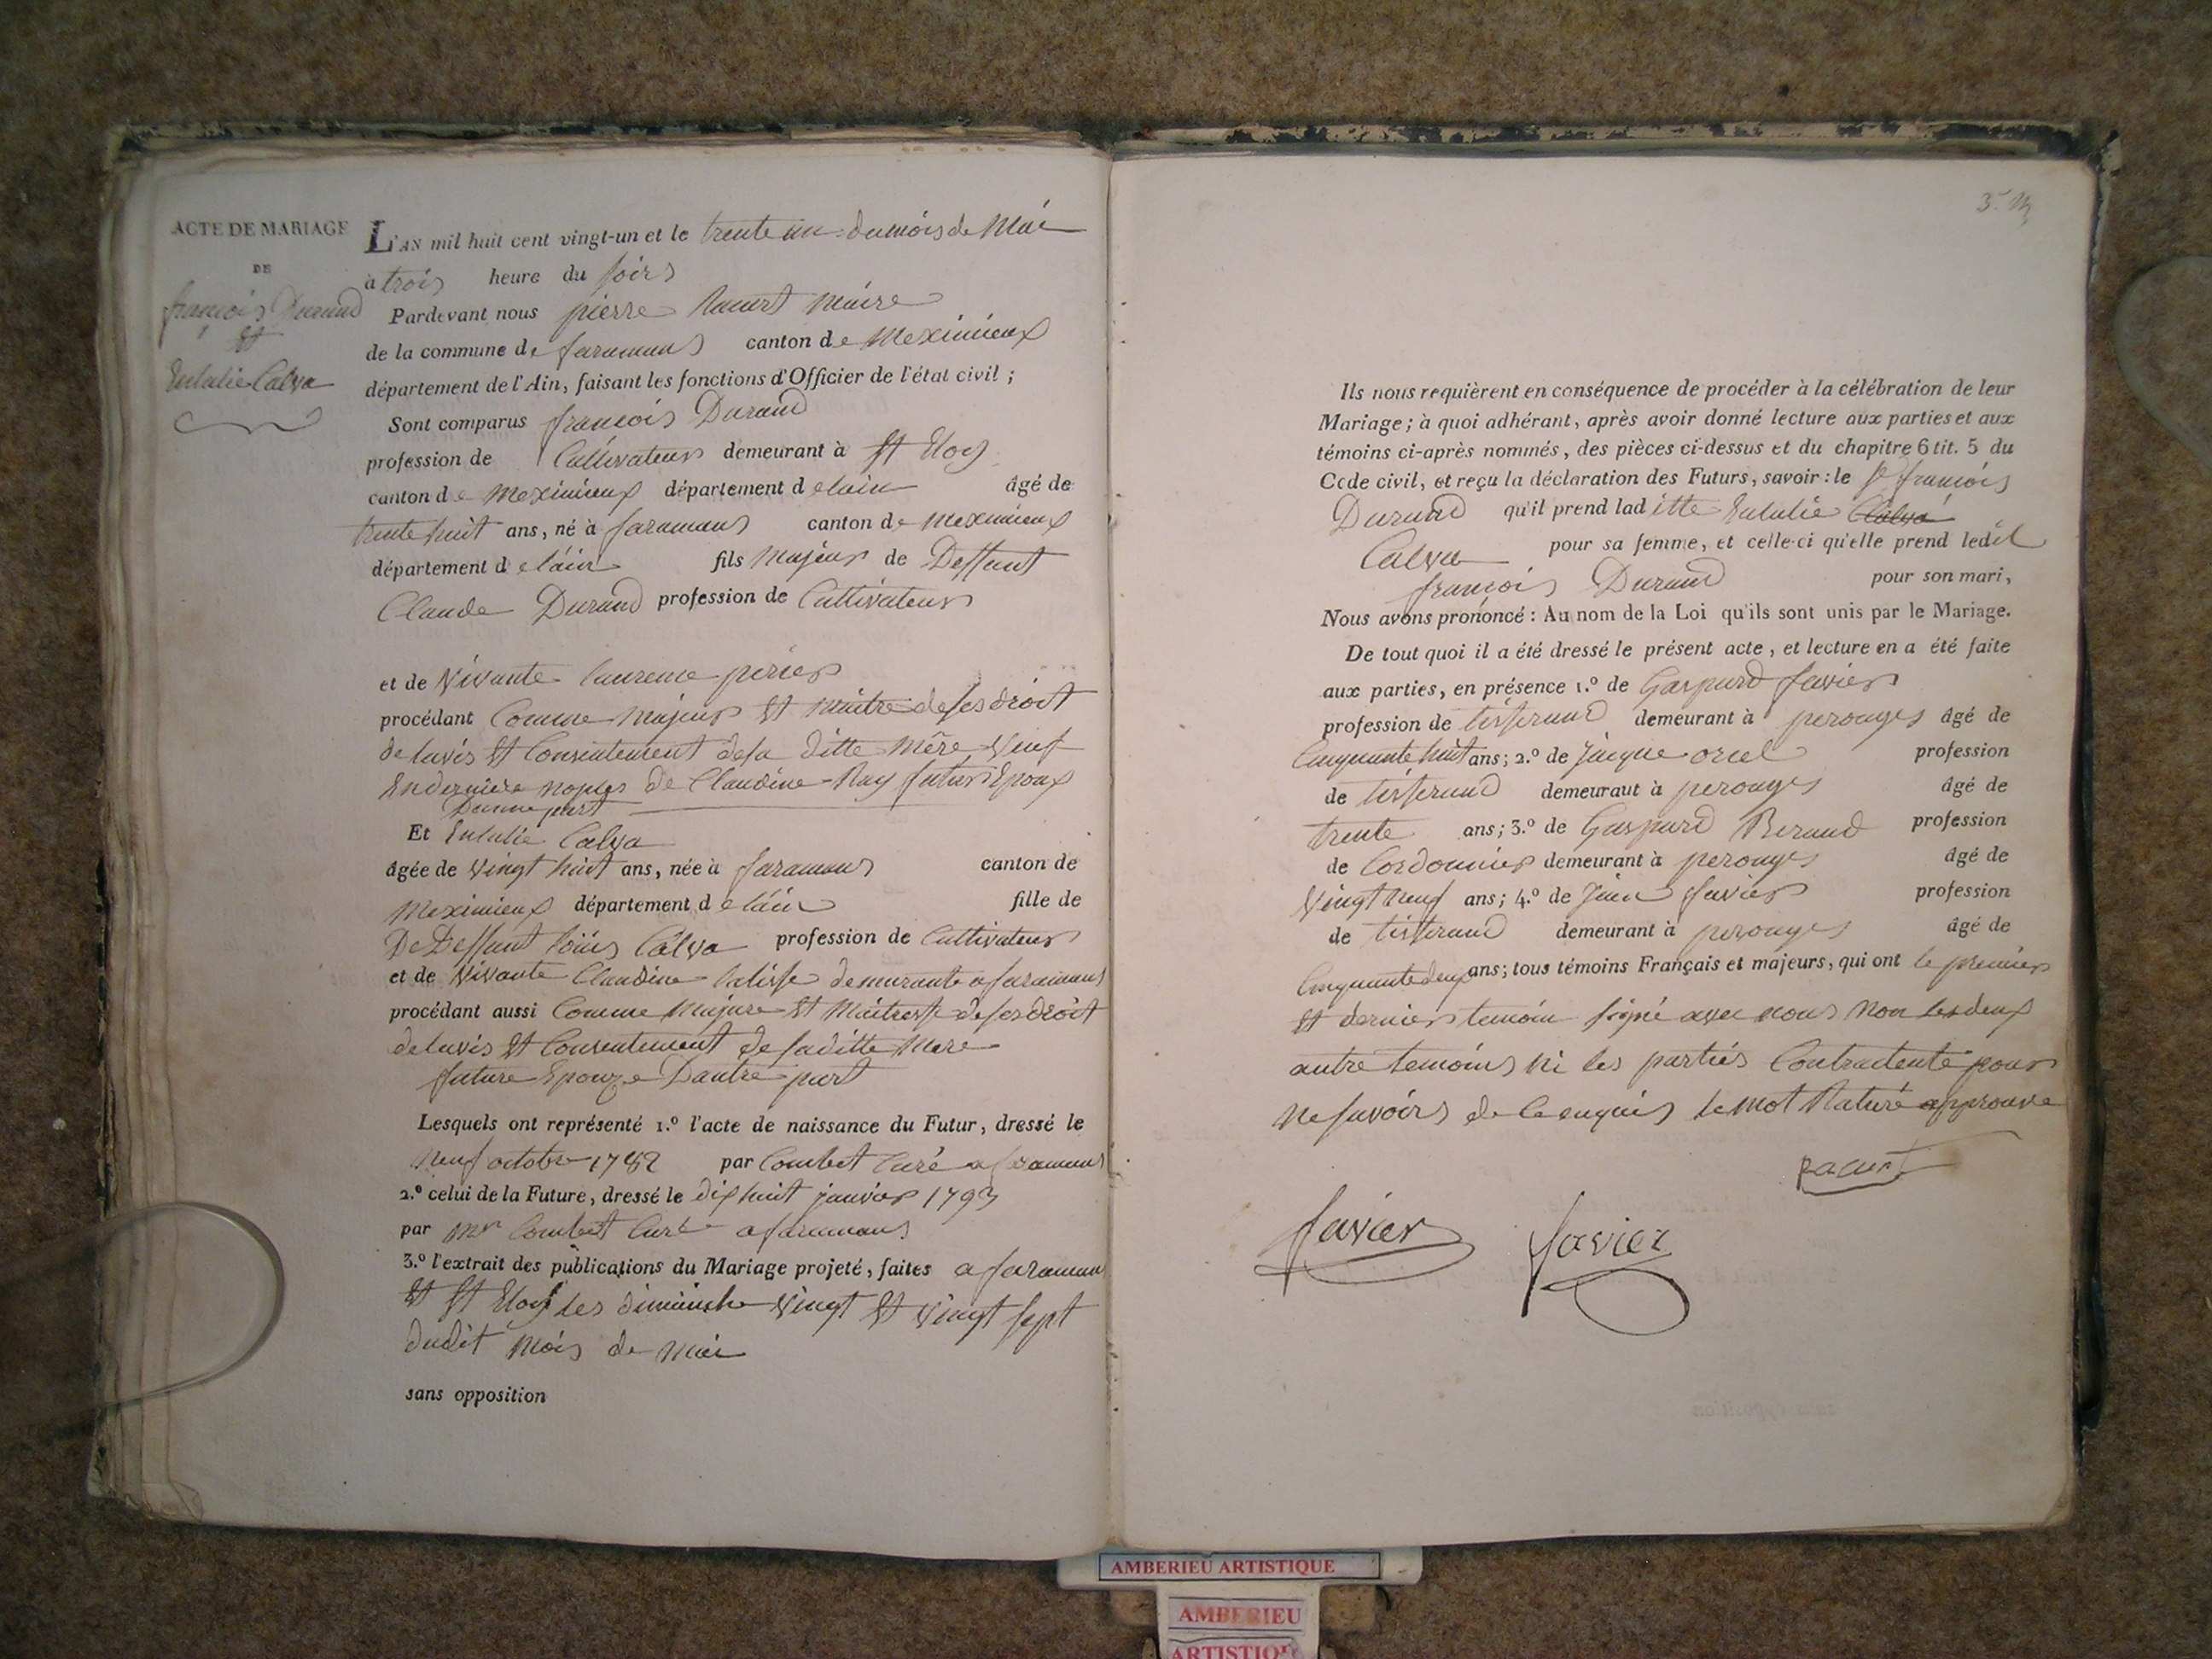 ACTE DE MARIAGE
DE
françois Durand
Et
Eulalie Calva
L'AN mil huit cent vingt-un et le trente un dumois de Mai
à trois heure du soirs
Pardevant nous pierre Racurt Maire
de la commune de faramans canton de Meximieux
département de l'Ain, faisant les fonctions d'Officier de l'état civil ;
Sont comparus françois Durand
profession de Cultivateur demeurant à St Eloy
canton de meximieux département delain âgé de
trente huit ans, né à faramans canton de meximieux
département delain fils Majeur de Deffunt
Claude Durand profession de Cultivateur
et de Vivante laurence périer
procédant Comme Majeur Et Maitre deses droit
de lavis Et Consentement desa ditte Mère Veuf
En dernière nopses De Claudine Ray futur Epoux
Daune part
Et Eulalie Calva
âgée de Vingt huit ans, née à faramans canton de
Meximieux département delain fille de
De Deffunt loüis Calva profession de Cultivateur
et de Vivante Claudine demurante a faramans
procédant aussi Comme Majure Et Maitresse deses droit
delavis Et Consentement de saditte Mere
future Epouze Dautre part
Lesquels ont représenté 1.º l'acte de naissance du Futur, dressé le
neuf octobre 1782 par Combet Curé a faramans
2.º celui de la Future, dressé le dix huit janvier 1793
par Mr Combet Curé a faramans
3.º l'extrait des publications du Mariage projeté, faites a faramans
Et St Eloy les dimanche Vingt Et Vingt sept
dudit Mois de Mai
sans opposition
Ils nous requièrent en conséquence de procéder à la célébration de leur
Mariage ; à quoi adhérant, après avoir donné lecture aux parties et aux
témoins ci-après nommés, des pièces ci-dessus et du chapitre 6 tit. 5 du
Code civil, et reçu la déclaration des Futurs, savoir : le Sr françois
Durand qu'il prend laditte Eulalie Calva
Calva pour sa femme, et celle-ci qu'elle prend ledit
françois Durand pour son mari,
Nous avons prononcé : Au nom de la Loi qu'ils sont unis par le Mariage.
De tout quoi il a été dressé le présent acte, et lecture en a été faite
aux parties, en présence 1.º de Gaspard favier
profession de tisserand demeurant à perouges âgé de
Cinquante huit ans ; 2.º de Jacque orcel profession
de tisserand demeurant à perouges âgé de
trente ans ; 3.º de Gaspard Beraud profession
de Cordonnier demeurant à perouges âgé de
Vingt neuf ans ; 4.º de Jean favier profession
de tisserand demeurant à perouges âgé de
Cinquante deux ans ; tous témoins Français et majeurs, qui ont le premier
Et dernier temoin signé avec nous Non les deux
autre temoins ni les parties Contractente pour
ne savoirs de ce enquis le mot Raturé approuve
Racurt
favier
favier
AMBERIEU ARTISTIQUE
AMBERIEU
ARTISTIQUE